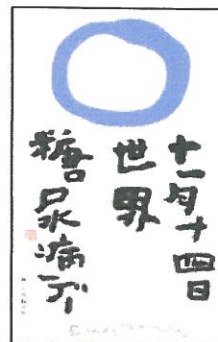 十一月十四日
世界
糖尿病デー